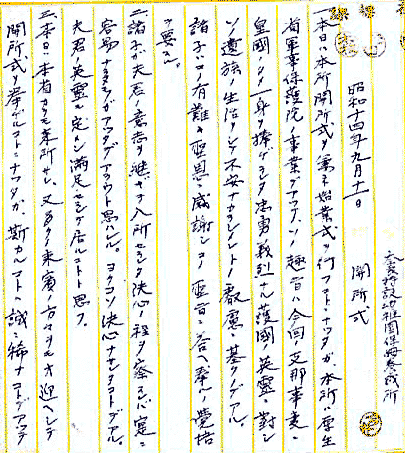 奈良特設幼稚園保姆養成所
昭和十四年九月十一日　開所式
一、本日ハ本所開所式ヲ兼ネ始業式ヲ行フコトニナツタガ、本所ハ厚生
省軍事保護院ノ事業デアツテ、ソノ趣旨ハ今回ノ支那事変ニ
皇國ノタメ一身ヲ捧ゲラレタ忠勇義烈ナル護國ノ英靈ニ對シ
ソノ遺族ノ生活ヲシテ不安ナカラシメントノ叡慮ニ基クノデアル。
諸子ハコノ有難キ聖恩ニ感謝シコノ聖旨ニ答ヘ奉ル覺悟
ヲ要ス。
二、諸子ガ夫君ノ意志ヲ継ギテ入所セラレタ決心ノ程ヲ察スレバ寔ニ
容易ナラヌモノガアツタデアラウト思ハレル。ヨクコソ決心ナサレタコトデアル。
夫君ノ英靈モ定メシ満足セラレテ居ルコトト思フ。
三、本日ハ本省カラモ来所サレ、又多クノ来賓ノ方々ヲモオ迎ヘシテ
開所式ヲ挙ゲルコトニナツタガ、斯カルコトハ誠ニ稀ナコトデアツテ